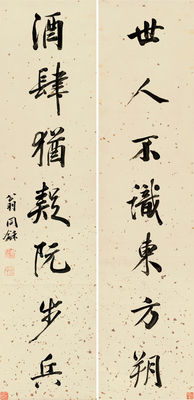 世人不識東方朔
酒肆猶疑阮步兵
翁同龢